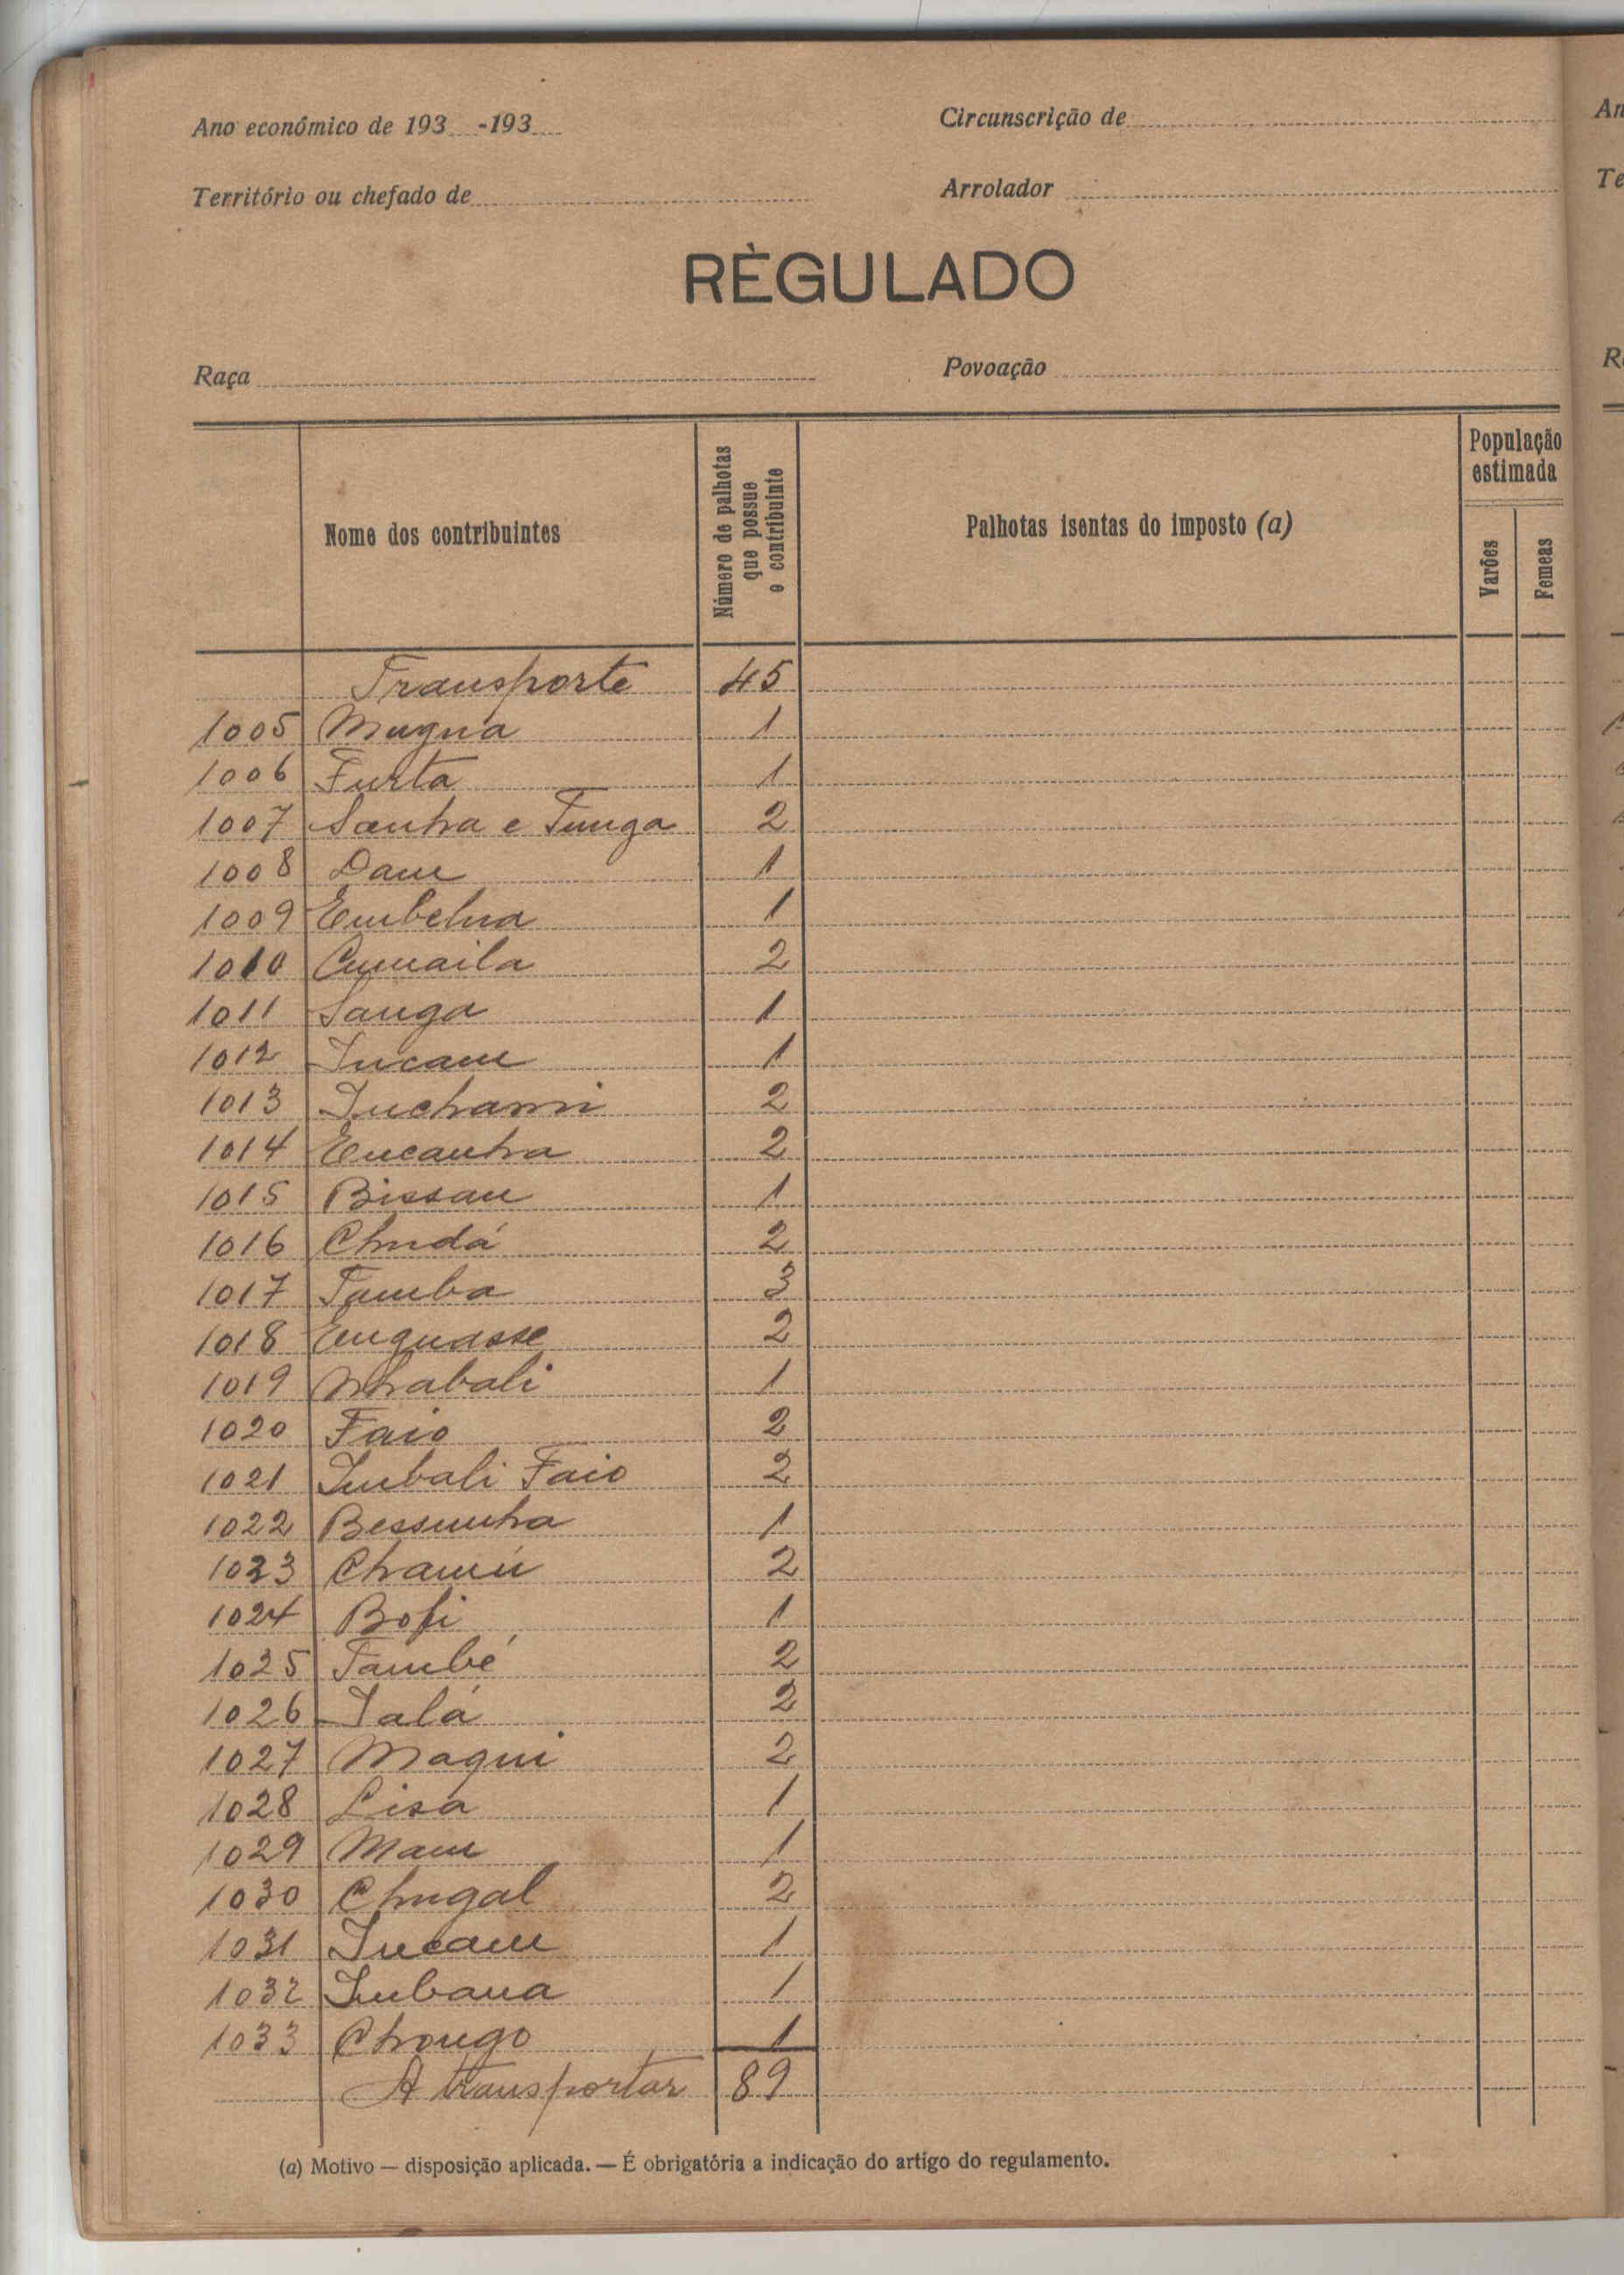 Ano económico de 193 -193
Circunscrição de
Território ou chefado de
Arrolador
RÈGULADO
Raça
Povoação
Nome dos contribuintes
Número de palhotas
que possue
o contribuinte
Palhotas isentas do imposto (a)
População
estimada
Varões
Femeas
Transporte 45
1005 Mugna 1
1006 Furta 1
1007 Sanha e Tunga 2
1008 Dam 1
1009 Embelna 1
1010 Cumaila 2
1011 Sanga 1
1012 Incam 1
1013 Inchami 2
1014 Encanha 2
1015 Bissau 1
1016 Chudá 2
1017 Tamba 3
1018 Enguasse 2
1019 Nhabali 1
1020 Faio 2
1021 Imbali Faio 2
1022 Bessunha 1
1023 Chamú 2
1024 Bofi 1
1025 També 2
1026 Ialá 2
1027 Maqui 2
1028 Lisa 1
1029 Mam 1
1030 Chugal 2
1031 Incam 1
1032 Imbana 1
1033 Chongo 1
A transportar 89
(a) Motivo — disposição aplicada. — É obrigatória a indicação do artigo do regulamento.